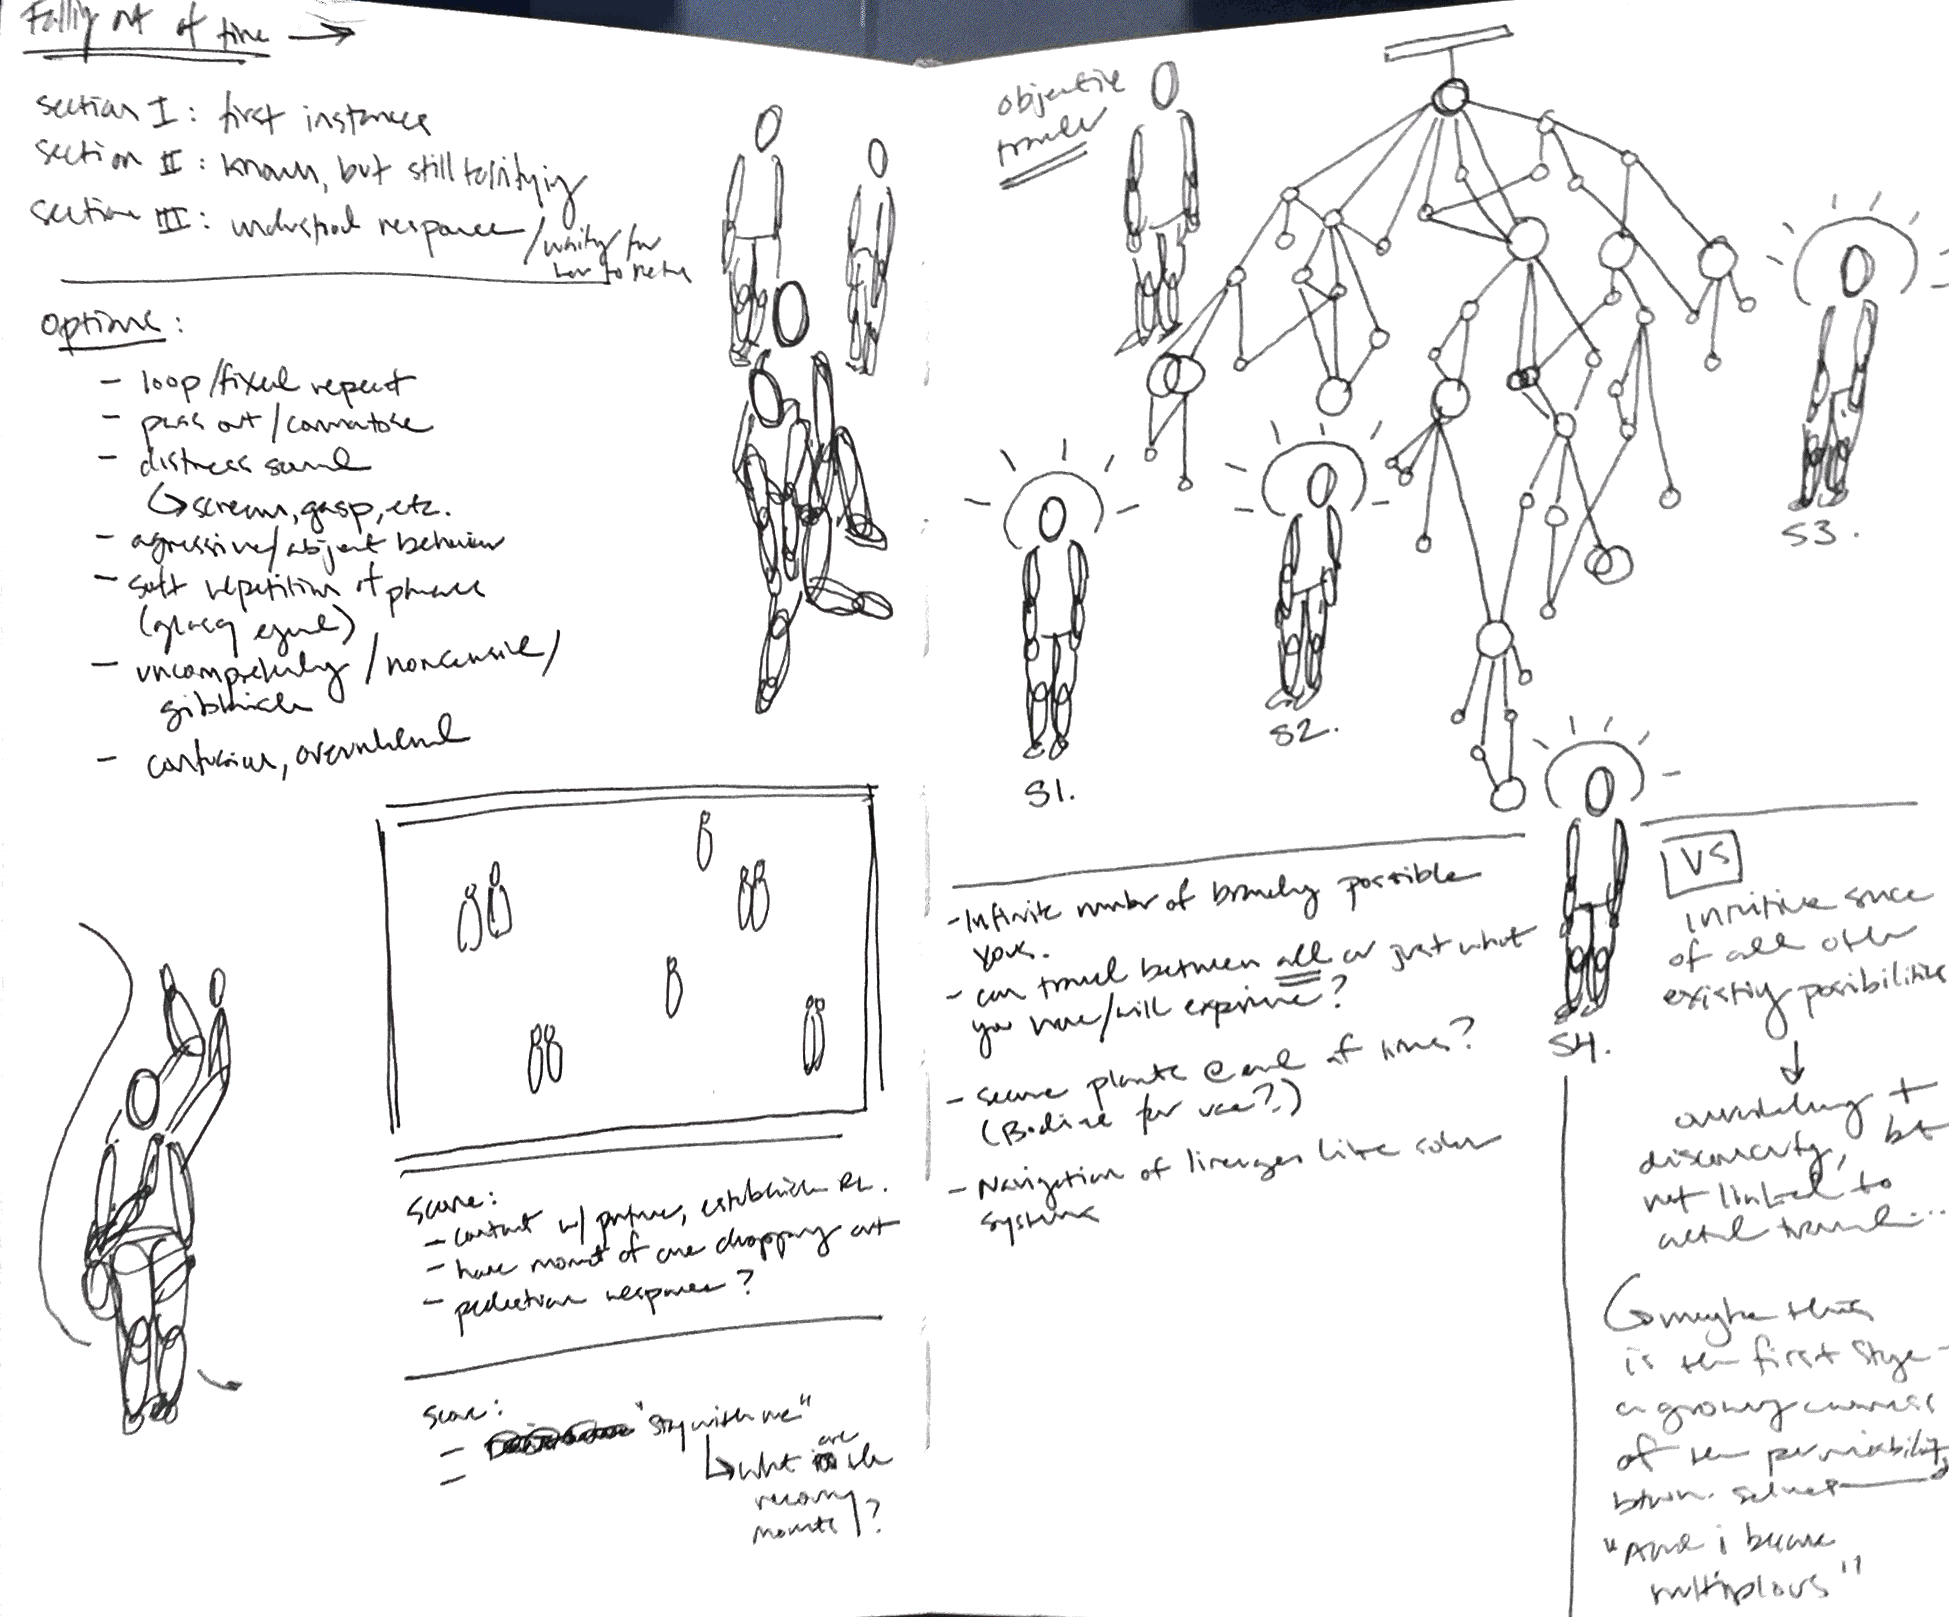 Falling out of time →
section I: first instances
section II: known, but still terrifying
section III: industrial response / waiting for
her to return
Options:
- loop/fixed repeat
- pass out/comatose
- distress sound
↳ scream, gasp, etc.
- agressive/abject behavior
- soft repetition of phrases
(glassy eyed)
- uncomprehending / noncensical /
gibberish
- confusion, overwhelmed
score:
- contact w/ partner, establish RL.
- have moment of one dropping out
- response?
score:
- "stay with me"
↳ what are the
recovery
moments?
-
objective
traveler
S1.
S2.
S3.
S4.
- Infinite number of branching possible
yous.
- can travel between all or just what
you have/will experience?
- secure planets @ end of times?
(Bodies for use?)
- Navigation of lineages like solar
systems
VS
intuitive sense
of all other
existing possibilities
↓
overwhelming +
disconcerting, but
not linked to
actual travel...
↳ maybe this
is the first stage -
a growing awareness
of the permeability
btwn. selves
"And i became
multiplous"